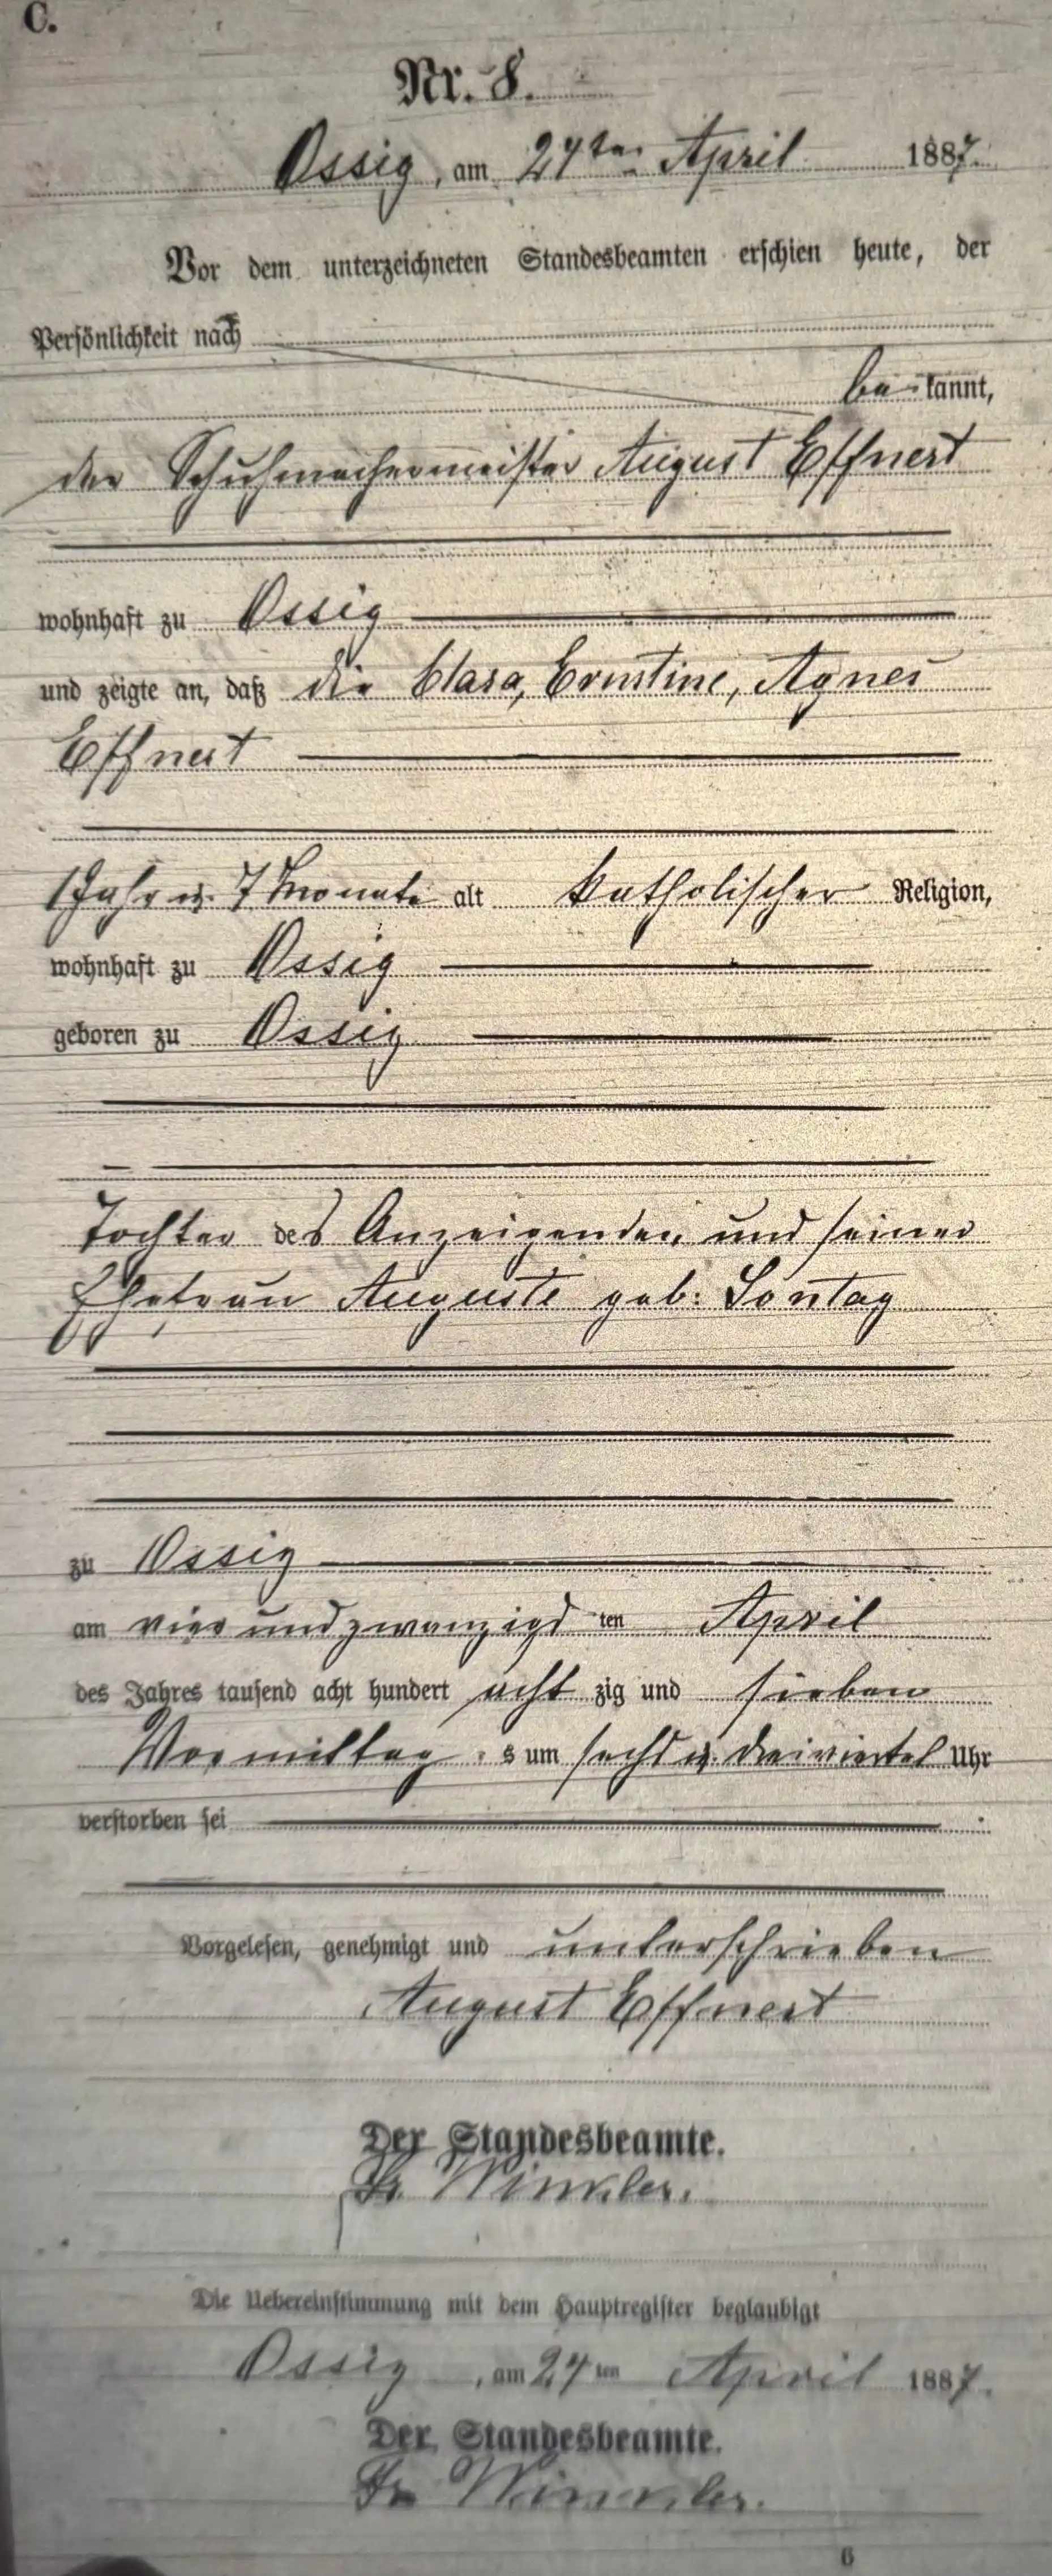 C.
Nr. 8.
Ossig, am 24ten April 1887.
Vor dem unterzeichneten Standesbeamten erschien heute, der
Persönlichkeit nach
be kannt,
der Schuhmachermeister August Effnert
wohnhaft zu Ossig
und zeigte an, daß die Clara, Ernstine, Agnes
Effnert
1 Jahr u. 7 Monate alt katholischer Religion,
wohnhaft zu Ossig
geboren zu Ossig
Tochter des Anzeigenden und seiner
Ehefrau Auguste geb. Sontag
zu Ossig
am vier und zwanzigs ten April
des Jahres tausend acht hundert acht zig und sieben
Vormittag s um sechs u. dreiviertel Uhr
verstorben sei
Vorgelesen, genehmigt und unterschrieben
August Effnert
Der Standesbeamte.
Fr. Winkler.
Die Uebereinstimmung mit dem Hauptregister beglaubigt
Ossig, am 24 ten April 1887.
Der Standesbeamte.
Fr Winkler.
6